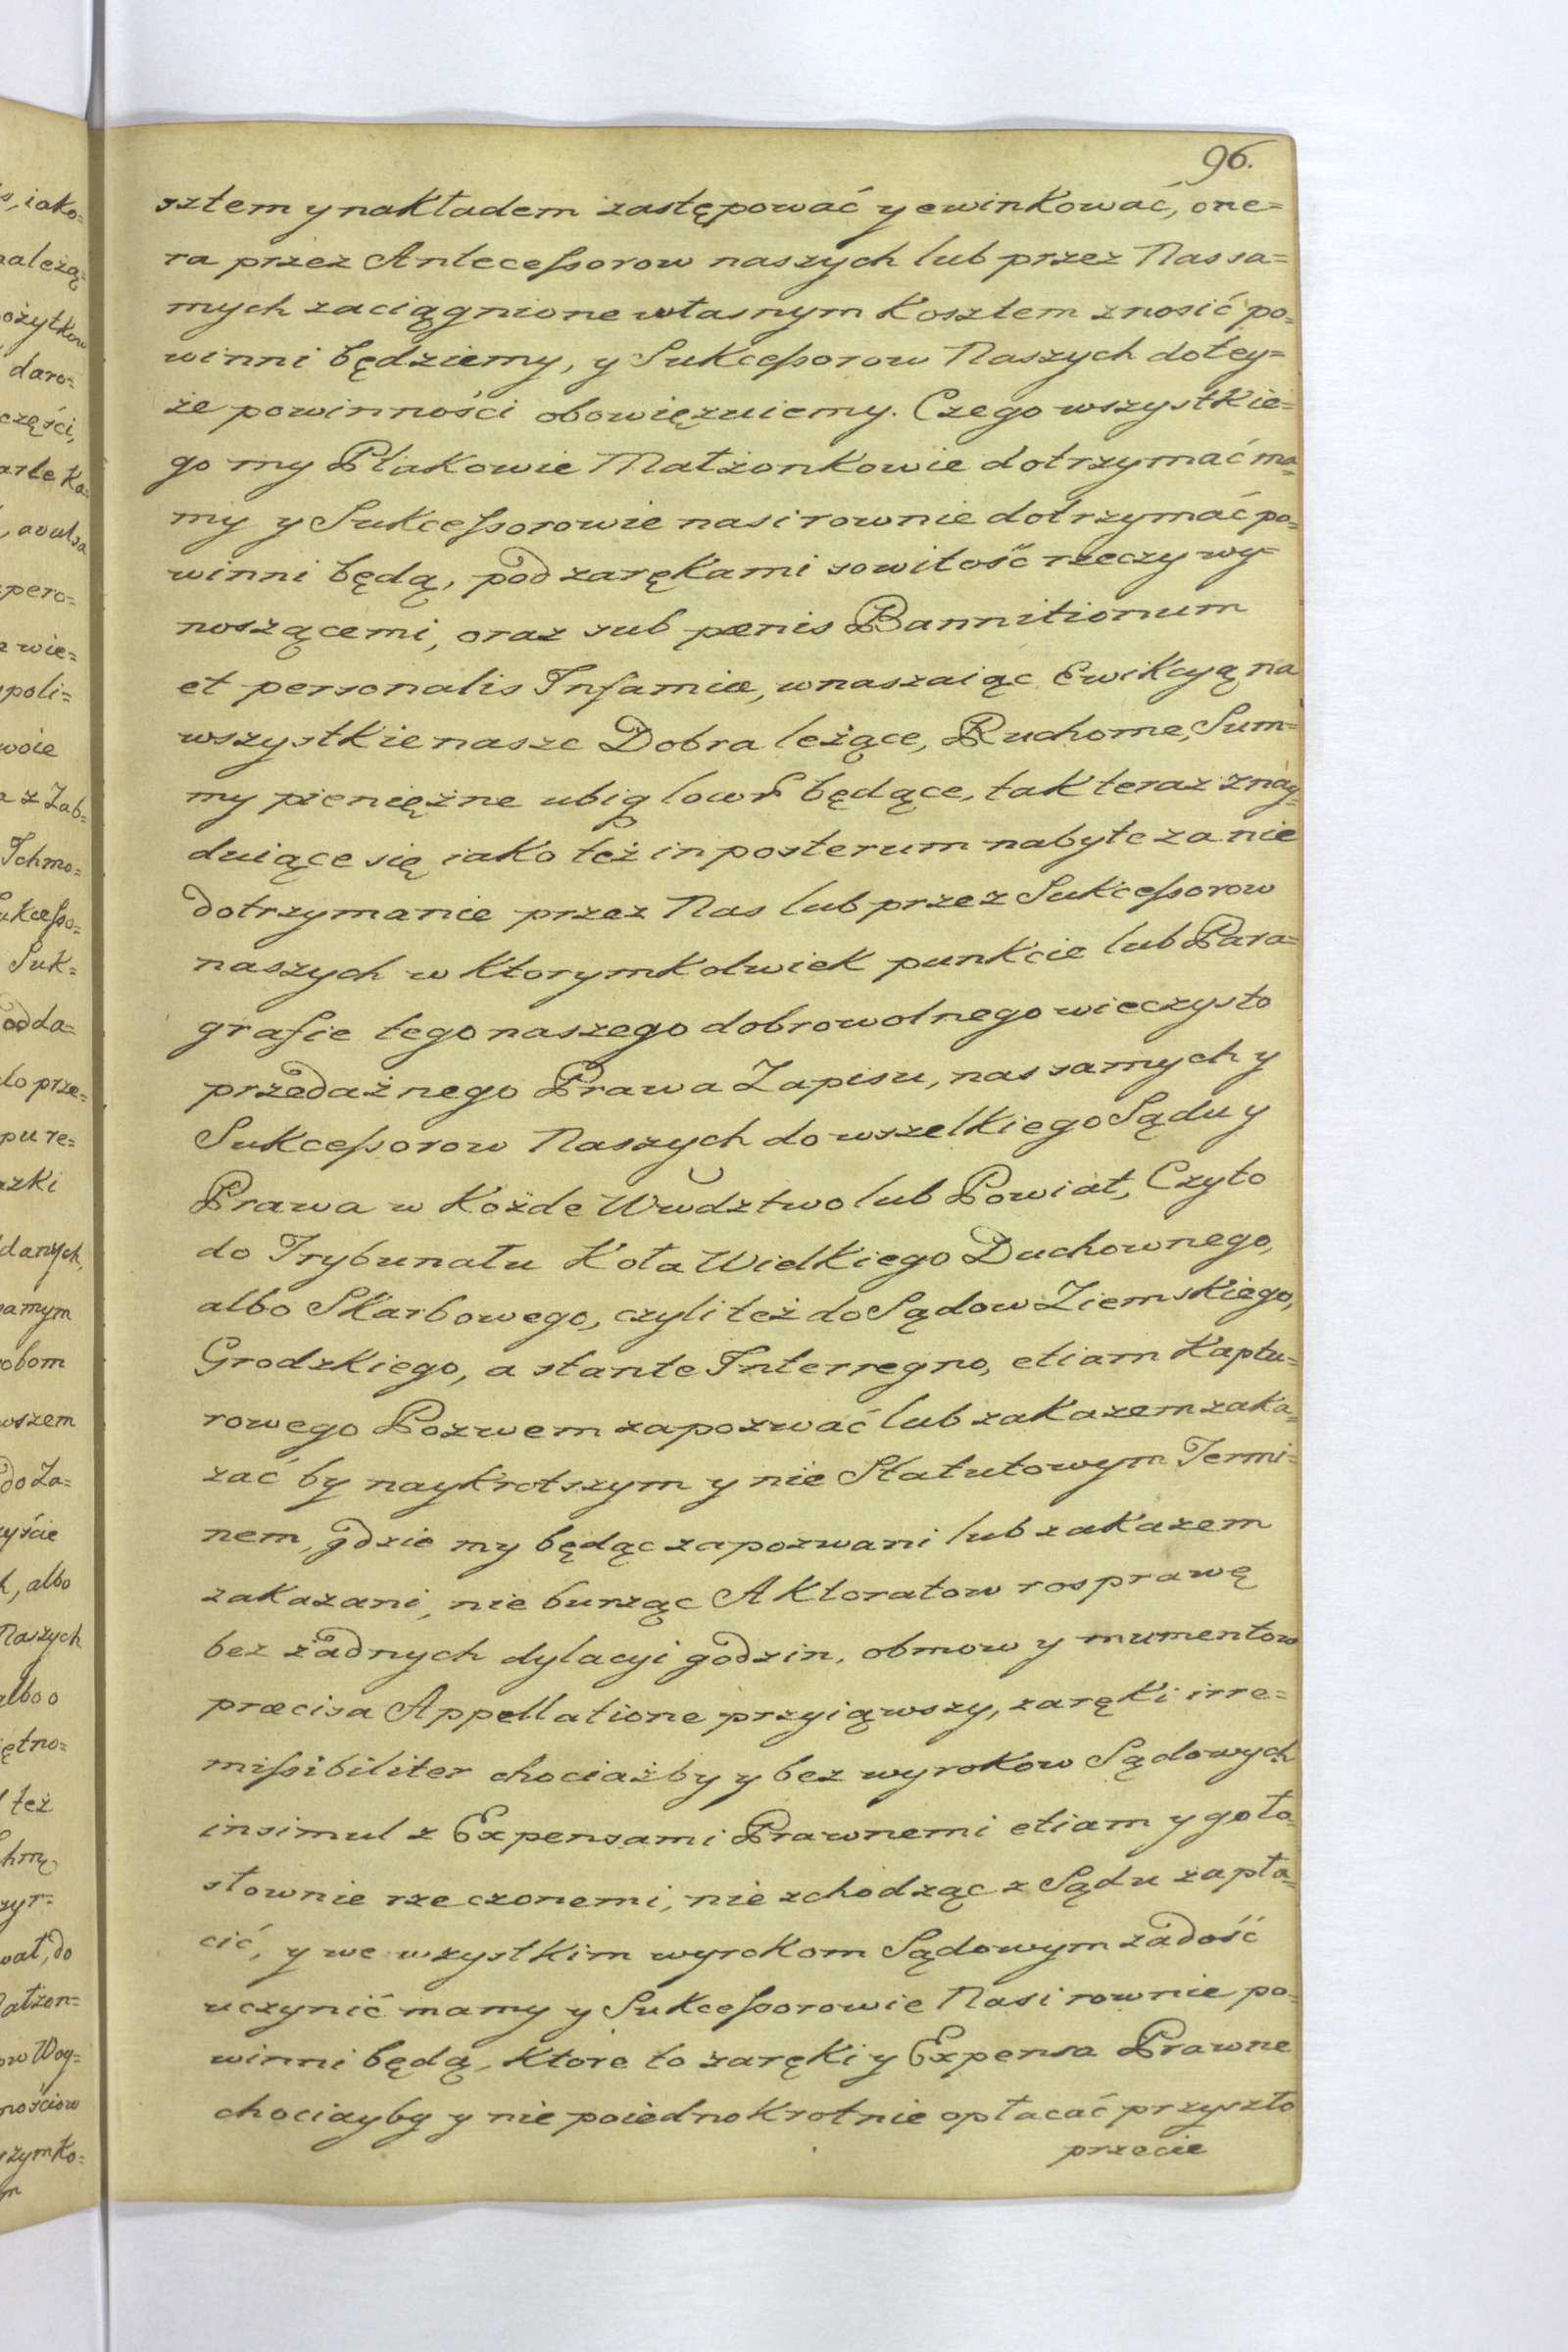 96.
sztem y nakładem zastępować y ewinkować, one=
ra przez Antecessorow naszych lub przez Nas sa=
mych zaciągnione własnym Kosztem znosić po=
winni będziemy, y Sukcessorow Naszych do tey=
że powinności obowięzuiemy. Czego wszystkie=
go my Ptakowie Małżonkowie dotrzymać ma=
my y Sukcessorowie nasi rownie dotrzymać po=
winni będą, pod zarękami sowitość rzeczy wy=
noszącemi, oraz sub pænis Bannitionum
et personalis Infamiæ, wnaszaiąc Ewikcyą na
wszystkie nasze Dobra leżące, Ruchome, Sum=
my pieniężne ubiq locor będące, tak teraz znay=
duiące się iako też in posterum nabyte za nie
dotrzymanie przez Nas lub przez Sukcessorow
naszych w Ktorymkolwiek punkcie lub Para=
grafie tego naszego dobrowolnego wieczysto
przedażnego Prawa Zapisu, nas samych y
Sukcessorow Naszych do wszelkiego Sądu y
Prawa w Kożde Wwdztwo lub Powiat, Czyto
do Trybunału Koła Wielkiego Duchownego,
albo Skarbowego, czyli też do Sądow Ziemskiego,
Grodzkiego, a stante Interregno, etiam Kaptu=
rowego Pozwem zapozwać lub zakazem zaka=
zać by naykrotszym y nie Statutowym Termi=
nem, gdzie my będąc zapozwani lub zakazem
zakazani, nie burząc Aktoratow rosprawę
bez żadnych dylacyi godzin, obmow y mumentow
præcisa Appellatione przyiąwszy, zaręki irre=
missibiliter chociażby y bez wyrokow Sądowych
insimul z Expensami Prawnemi etiam y goło
słownie rzeczonemi, nie zchodząc z Sądu zapła=
cić, y we wszystkim wyrokom Sądowym zadość
uczynić mamy y Sukcessorowie Nasi rownie po=
winni będą, Ktore to zaręki y Expensa Prawne
chociayby y nie poiednokrotnie opłacać przyszło
przecie